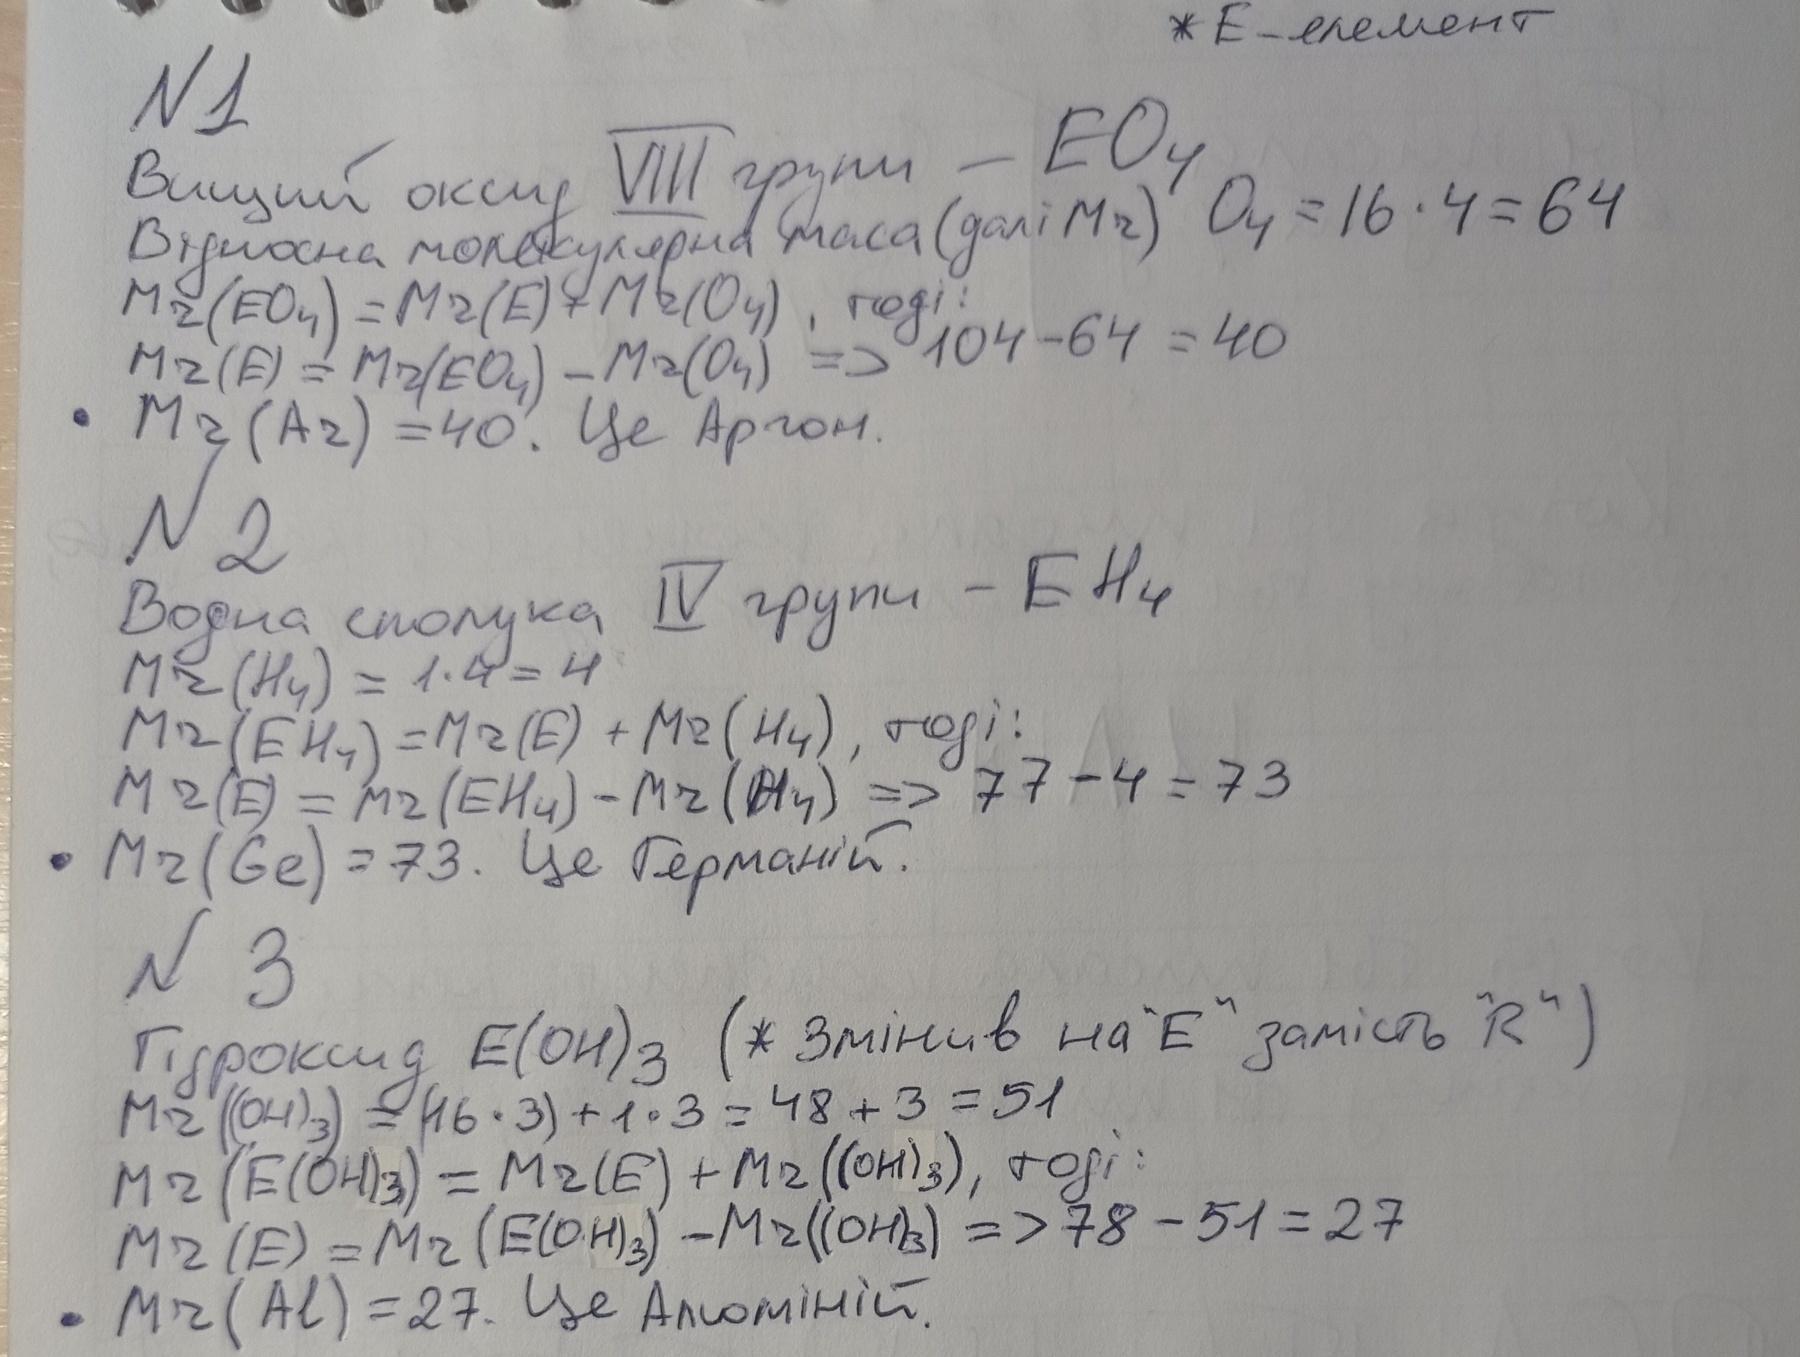 * E – елемент
N1
Вищий оксид VIII групи – EO₄
Відносна молекулярна маса (далі Mr) O₄ = 16 · 4 = 64
Mr(EO₄) = Mr(E) + Mr(O₄), тоді:
Mr(E) = Mr(EO₄) – Mr(O₄) => 104 – 64 = 40
• Mr(Ar) = 40. Це Аргон.
N2
Водна сполука IV групи – EH₄
Mr(H₄) = 1·4 = 4
Mr(EH₄) = Mr(E) + Mr(H₄), тоді:
Mr(E) = Mr(EH₄) – Mr(H₄) => 77 – 4 = 73
• Mr(Ge) = 73. Це Германій.
N3
Гідроксид E(OH)₃ (* Змінив на "E" замість "R")
Mr((OH)₃) = (16·3) + 1·3 = 48 + 3 = 51
Mr(E(OH)₃) = Mr(E) + Mr((OH)₃), тоді:
Mr(E) = Mr(E(OH)₃) – Mr((OH)₃) => 78 – 51 = 27
• Mr(Al) = 27. Це Алюміній.